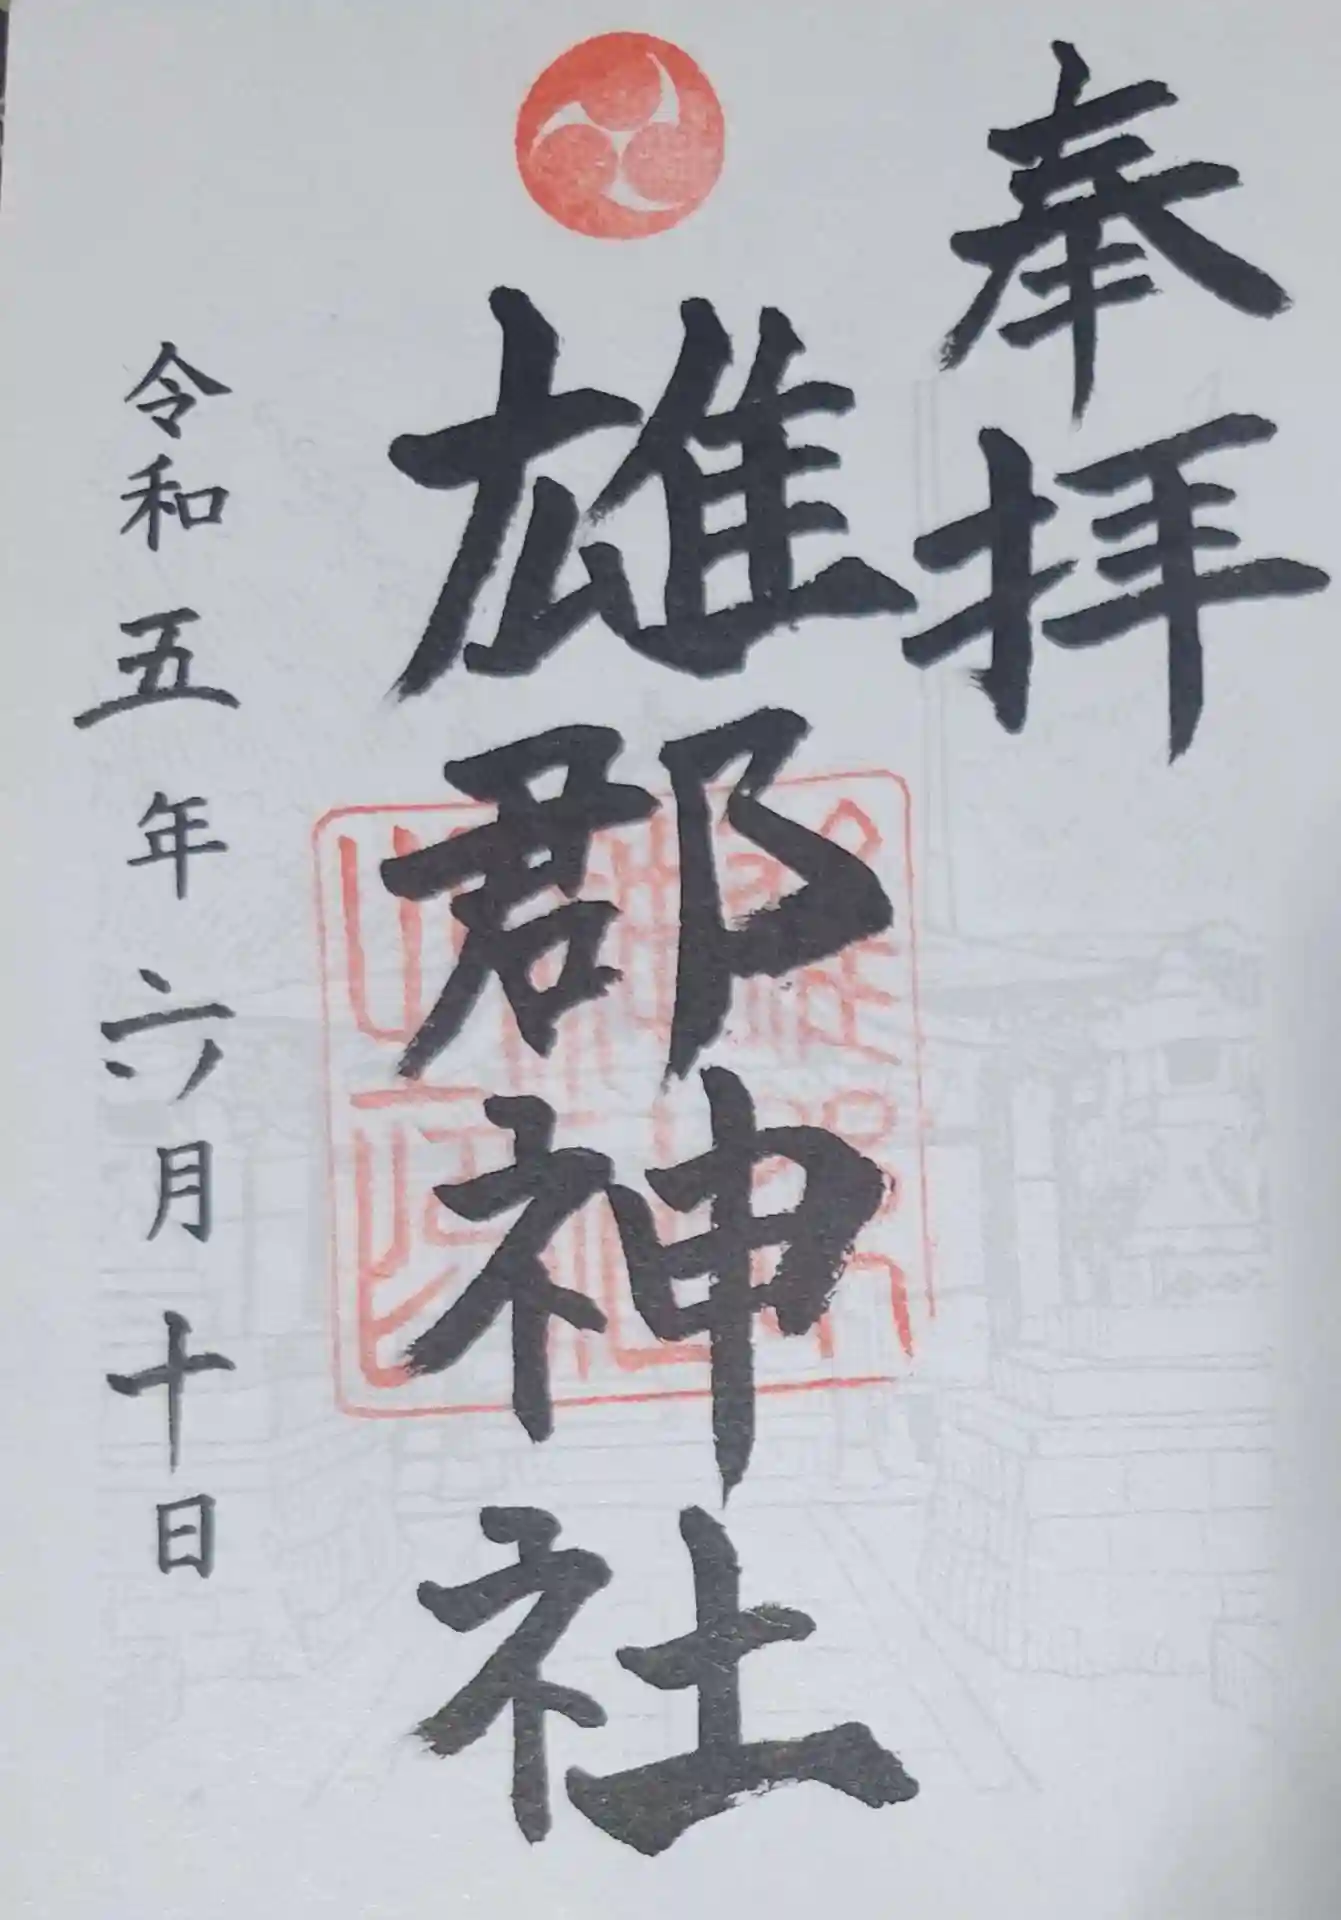 奉拝
雄郡神社
令和五年六月十日